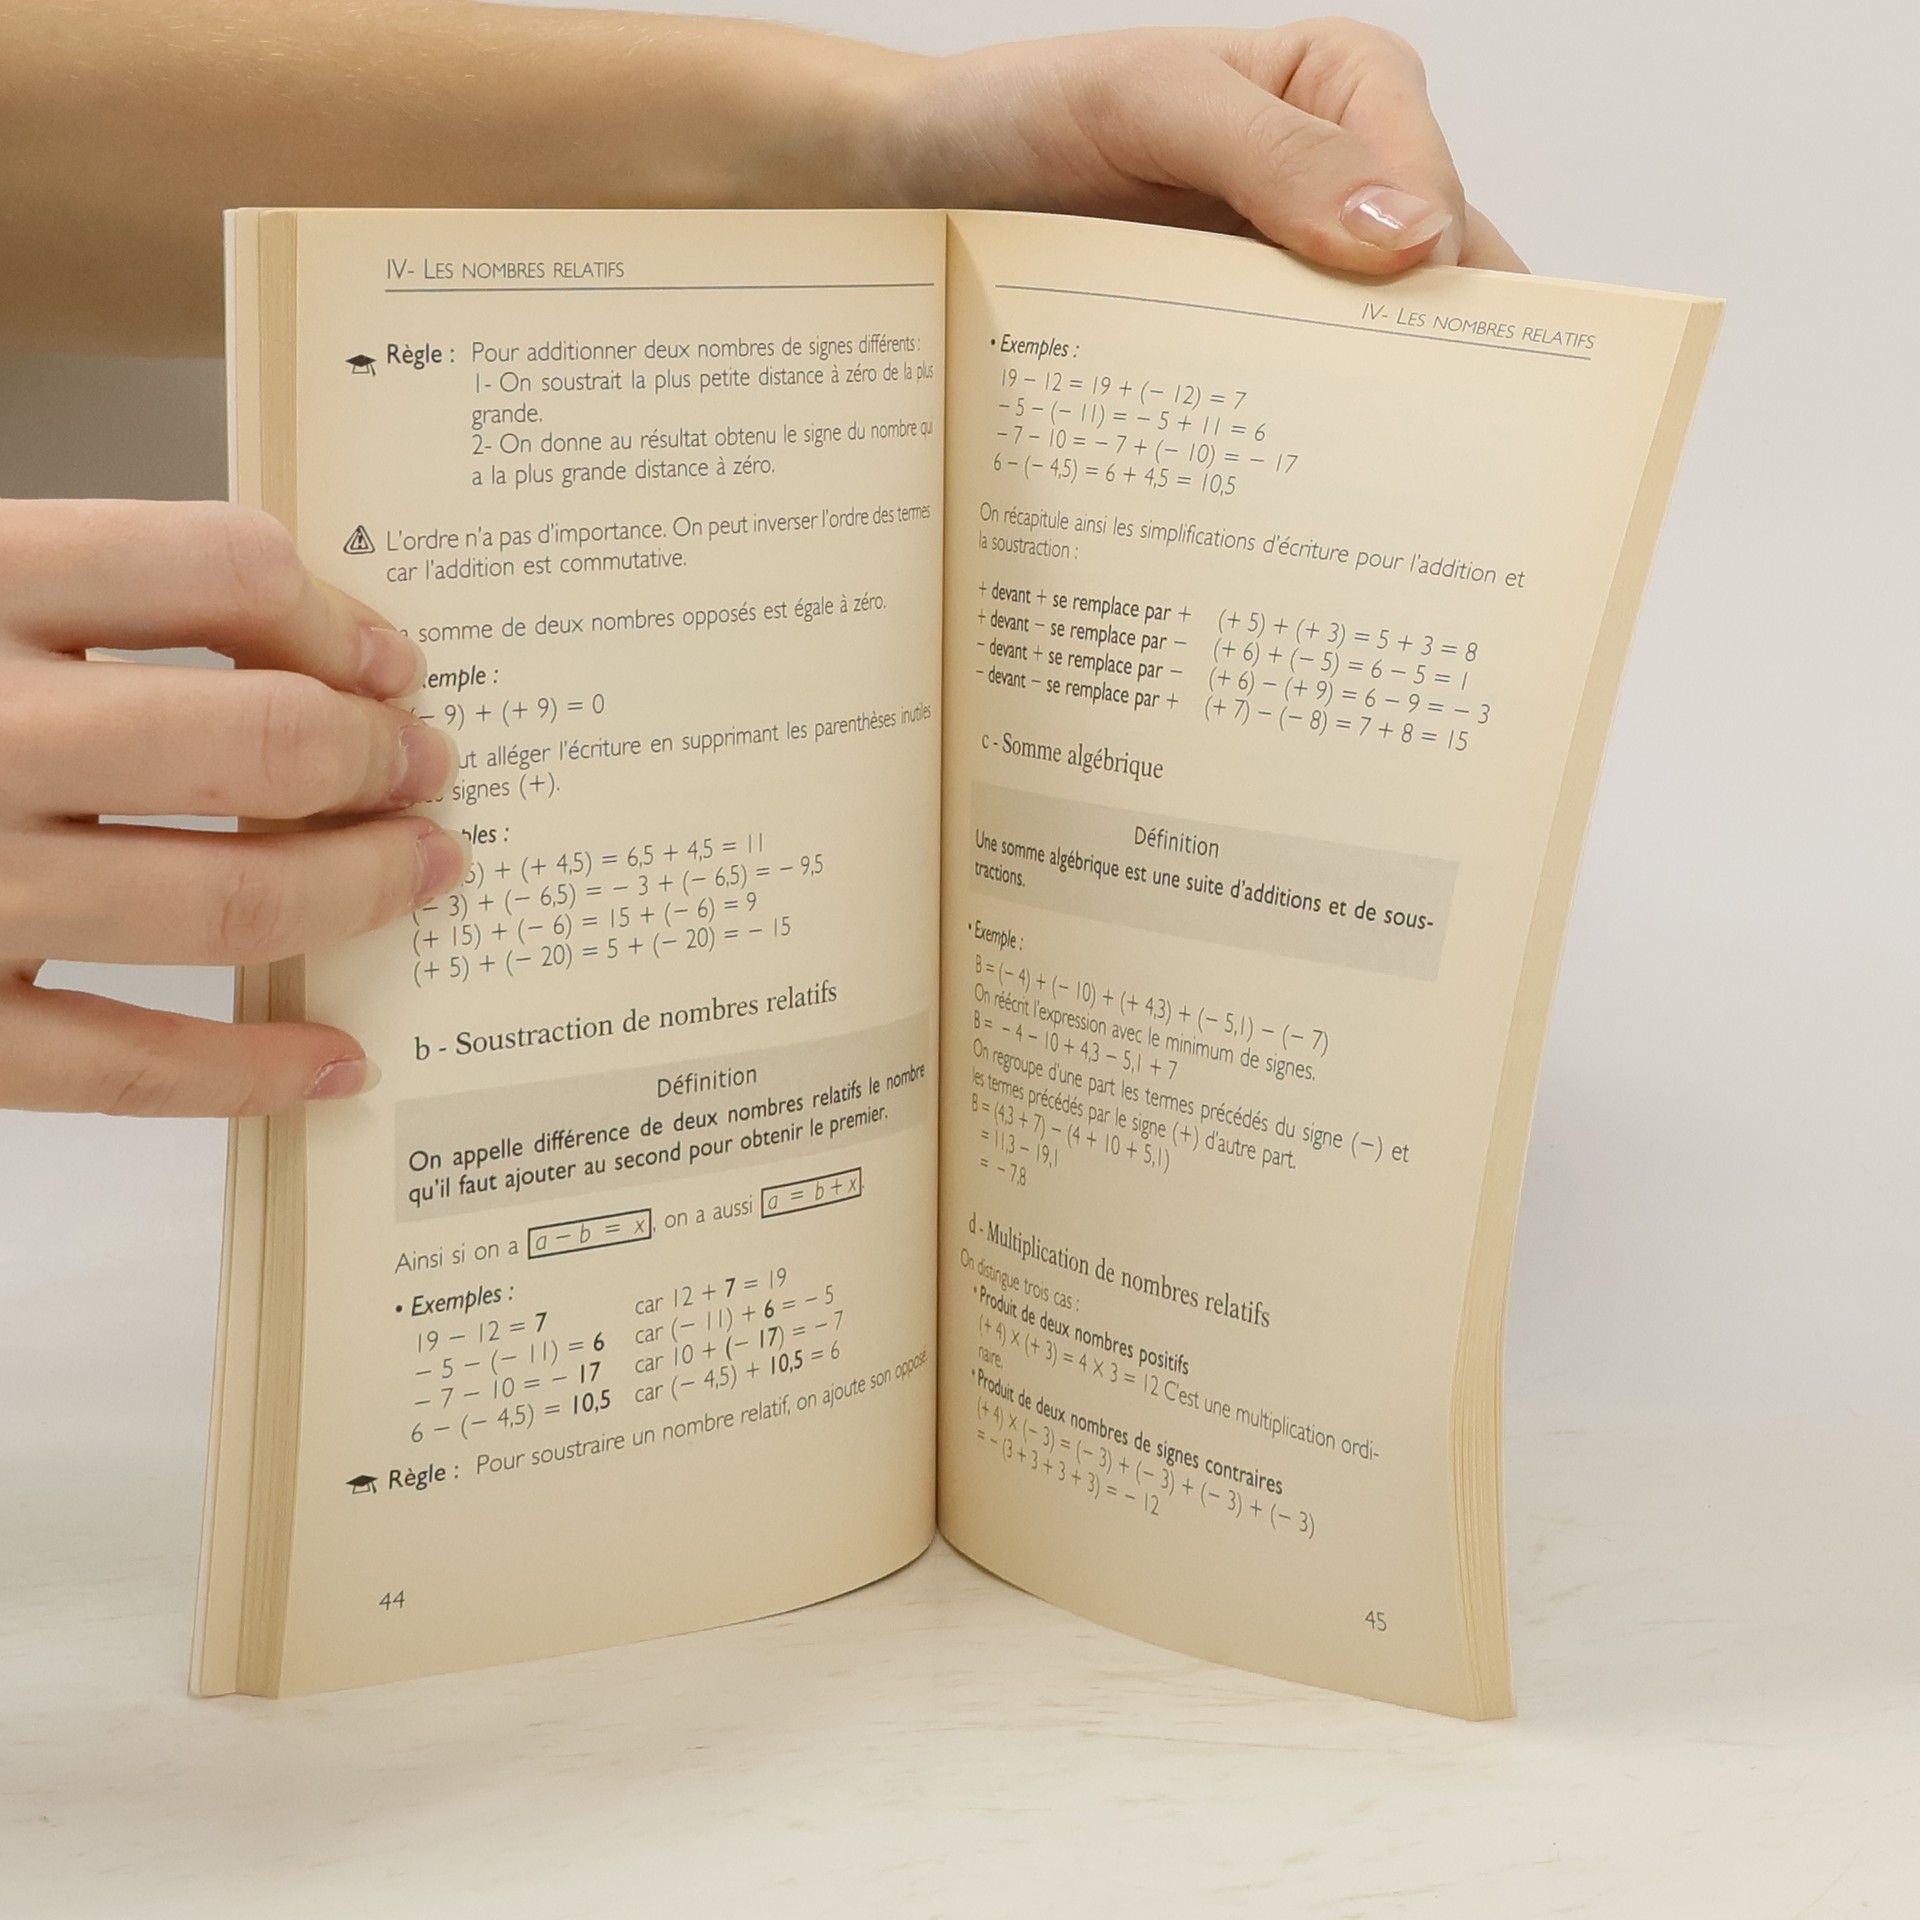 IV- LES NOMBRES RELATIFS
Règle : Pour additionner deux nombres de signes différents :
1- On soustrait la plus petite distance à zéro de la plus
grande.
2- On donne au résultat obtenu le signe du nombre qui
a la plus grande distance à zéro.
L'ordre n'a pas d'importance. On peut inverser l'ordre des termes
car l'addition est commutative.
somme de deux nombres opposés est égale à zéro.
emple :
– 9) + (+ 9) = 0
ut alléger l'écriture en supprimant les parenthèses inutiles
signes (+).
ples :
5) + (+ 4,5) = 6,5 + 4,5 = 11
(– 3) + (– 6,5) = – 3 + (– 6,5) = – 9,5
(+ 15) + (– 6) = 15 + (– 6) = 9
(+ 5) + (– 20) = 5 + (– 20) = – 15
b - Soustraction de nombres relatifs
Définition
On appelle différence de deux nombres relatifs le nombre
qu'il faut ajouter au second pour obtenir le premier.
Ainsi si on a a – b = x, on a aussi a = b + x.
• Exemples :
19 – 12 = 7 car 12 + 7 = 19
– 5 – (– 11) = 6 car (– 11) + 6 = – 5
– 7 – 10 = – 17 car 10 + (– 17) = – 7
6 – (– 4,5) = 10,5 car (– 4,5) + 10,5 = 6
Règle : Pour soustraire un nombre relatif, on ajoute son opposé.
44
IV- LES NOMBRES RELATIFS
• Exemples :
19 – 12 = 19 + (– 12) = 7
– 5 – (– 11) = – 5 + 11 = 6
– 7 – 10 = – 7 + (– 10) = – 17
6 – (– 4,5) = 6 + 4,5 = 10,5
On récapitule ainsi les simplifications d'écriture pour l'addition et
la soustraction :
+ devant + se remplace par + (+ 5) + (+ 3) = 5 + 3 = 8
+ devant – se remplace par – (+ 6) + (– 5) = 6 – 5 = 1
– devant + se remplace par – (+ 6) – (+ 9) = 6 – 9 = – 3
– devant – se remplace par + (+ 7) – (– 8) = 7 + 8 = 15
c - Somme algébrique
Définition
Une somme algébrique est une suite d'additions et de sous-
tractions.
• Exemple :
B = (– 4) + (– 10) + (+ 4,3) + (– 5,1) – (– 7)
On réécrit l'expression avec le minimum de signes.
B = – 4 – 10 + 4,3 – 5,1 + 7
On regroupe d'une part les termes précédés du signe (–) et
les termes précédés par le signe (+) d'autre part.
B = (4,3 + 7) – (4 + 10 + 5,1)
= 11,3 – 19,1
= – 7,8
d - Multiplication de nombres relatifs
On distingue trois cas :
• Produit de deux nombres positifs
(+ 4) × (+ 3) = 4 × 3 = 12 C'est une multiplication ordi-
naire.
• Produit de deux nombres de signes contraires
(+ 4) × (– 3) = (– 3) + (– 3) + (– 3) + (– 3)
= – (3 + 3 + 3 + 3) = – 12
45